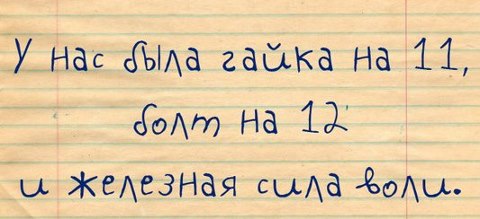 У нас была гайка на 11,
болт на 12
и железная сила воли.